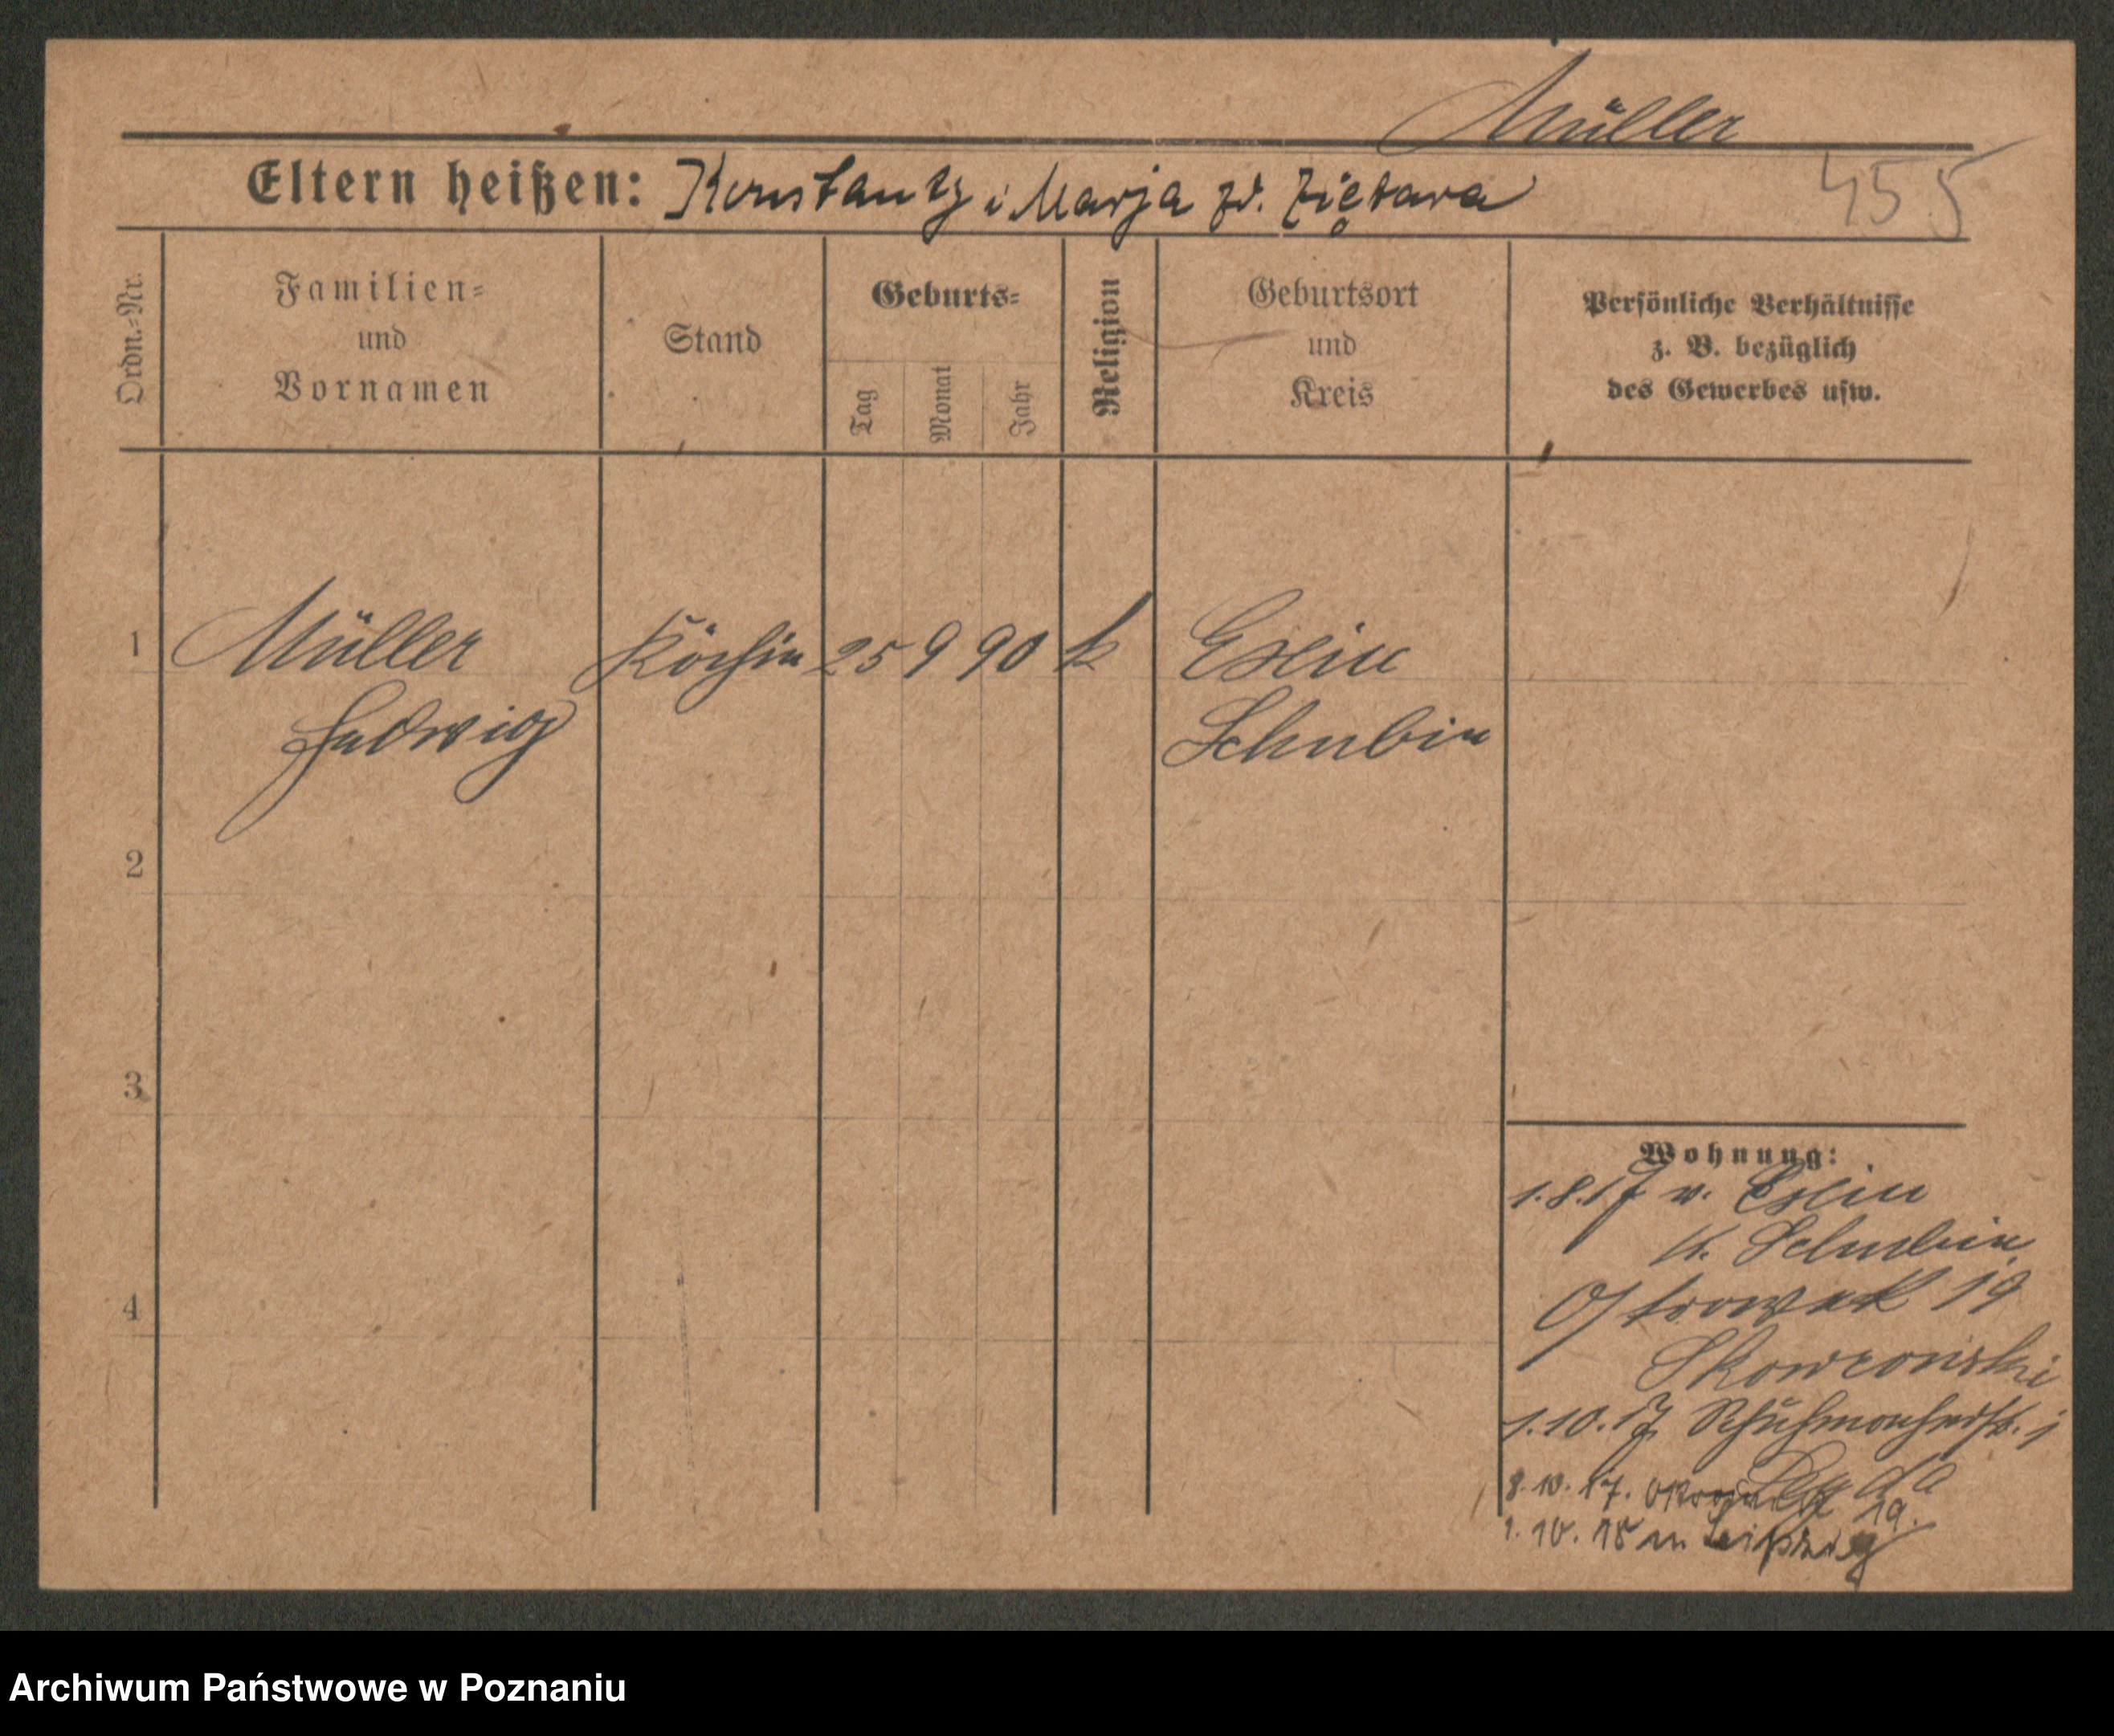 Müller
Eltern heißen: Konstanty i Marja zd. Ziętara
455
Ordn.-Nr.
Familien-
und
Vornamen
Stand
Geburts-
Tag
Monat
Jahr
Religion
Geburtsort
und
Kreis
Persönliche Verhältnisse
z. B. bezüglich
des Gewerbes usw.
1 Müller Köchin 25 9 90 k Exin
Hedwig Schubin
2
3
4
Wohnung:
1.8.17 v. Exin
K. Schubin
Ostrowek 19
Skowronski
1.10.17
8.10.17. 19.
1.10.18 n Leipzig
Archiwum Państwowe w Poznaniu